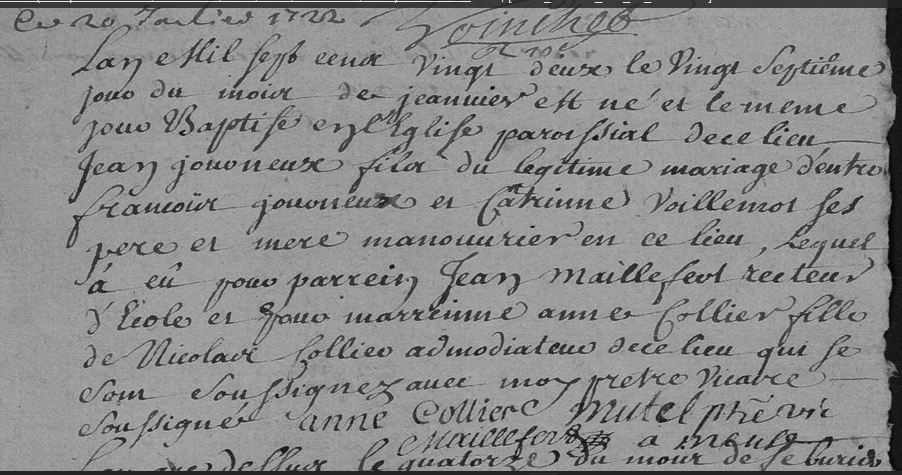 Ce 20 Janvier 1722
Lan Mil sept cent vingt deux le vingt septième
jour du mois de jeanvier est né et le meme
jour Baptisé en l'Eglise paroissial de ce lieu
Jean jouvoneux fils du legitime mariage d'entre
francois jouvoneux et Catrinne Voillemot ses
pere et mere manouvrier en ce lieu, lequel
á eû pour parrein Jean Maillefert récteur
d'Ecole et pour marreinne anne Collier fille
de Nicolas Collier admodiateur de ce lieu qui se
sont soussignez avec moy pretre vicaire
soussigné anne Collier Mutel ptre vic
Maillefert a meuse
le quatorze du mois de